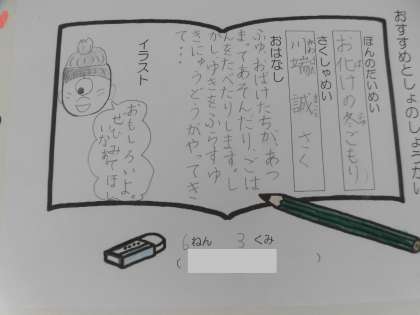 おすすめとしょのしょうか
ほんのだいめい
お化けの冬ごもり
さくしゃめい
川端 誠 さく
おはなし
ふゆおばけたちが、あつ
まってあそんだり、ごは
んをたべたりします。し
かしゆきをふらすゆ
きにゅうどうがやってき
て・・・
イラスト
おもしろいよ。
ぜひみてほし
いなあ
6ねん 3くみ
( )